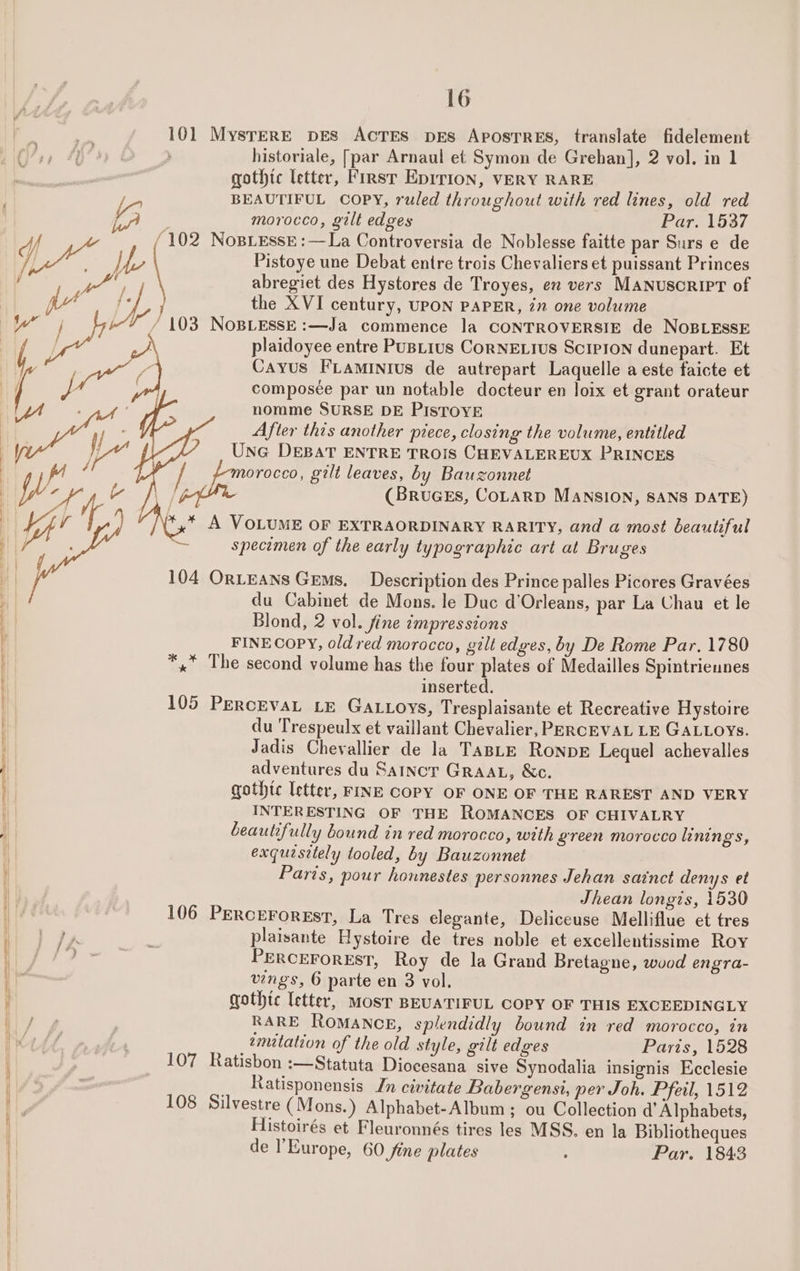 16
101 MYSTERE DES ACTES DES APOSTRES, translate fidelement
historiale, [par Arnaul et Symon de Greban], 2 vol. in 1
gothic letter, FIRST EDITION, VERY RARE
BEAUTIFUL COPY, ruled throughout with red lines, old red
morocco, gilt edges Par. 1537
102 NOBLESSE :—La Controversia de Noblesse faitte par Surs e de
Pistoye une Debat entre trois Chevaliers et puissant Princes
abregiet des Hystores de Troyes, en vers MANUSCRIPT of
the XVI century, UPON PAPER, in one volume
103 NOBLESSE :—Ja commence la CONTROVERSIE de NOBLESSE
plaidoyee entre PUBLIUS CORNELIUS SCIPION dunepart. Et
CAYUS FLAMINIUS de autrepart Laquelle a este faicte et
composée par un notable docteur en loix et grant orateur
nomme SURSE DE PISTOYE
After this another piece, closing the volume, entitled
UNG DEBAT ENTRE TROIS CHEVALEREUX PRINCES
morocco, gilt leaves, by Bauzonnet
(BRUGES, COLARD MANSION, SANS DATE)
*⁎* A VOLUME OF EXTRAORDINARY RARITY, and a most beautiful
specimen of the early typographic art at Bruges
104 ORLEANS GEMS. Description des Prince palles Picores Gravées
du Cabinet de Mons. le Duc d'Orleans, par La Chau et le
Blond, 2 vol. fine impressions
FINE COPY, old red morocco, gilt edges, by De Rome Par. 1780
*⁎* The second volume has the four plates of Medailles Spintriennes
inserted.
105 PERCEVAL LE GALLOYS, Tresplaisante et Recreative Hystoire
du Trespeulx et vaillant Chevalier, PERCEVAL LE GALLOYS.
Jadis Chevallier de la TABLE RONDE Lequel achevalles
adventures du SAINCT GRAAL, &c.
gothic letter, FINE COPY OF ONE OF THE RAREST AND VERY
INTERESTING OF THE ROMANCES OF CHIVALRY
beautifully bound in red morocco, with green morocco linings,
exquisitely tooled, by Bauzonnet
Paris, pour honnestes personnes Jehan sainct denys et
Jhean longis, 1530
106 PERCEFOREST, La Tres elegante, Deliceuse Melliflue et tres
plaisante Hystoire de tres noble et excellentissime Roy
PERCEFOREST, Roy de la Grand Bretagne, wood engra-
vings, 6 parte en 3 vol.
gothic letter, MOST BEUATIFUL COPY OF THIS EXCEEDINGLY
RARE ROMANCE, splendidly bound in red morocco, in
imitation of the old style, gilt edges Paris, 1528
107 Ratisbon :—Statuta Diocesana sive Synodalia insignis Ecclesie
Ratisponensis In civitate Babergensi, per Joh. Pfeil, 1512
108 Silvestre (Mons.) Alphabet-Album ; ou Collection d'Alphabets,
Histoirés et Fleuronnés tires les MSS. en la Bibliotheques
de l'Europe, 60 fine plates Par. 1843